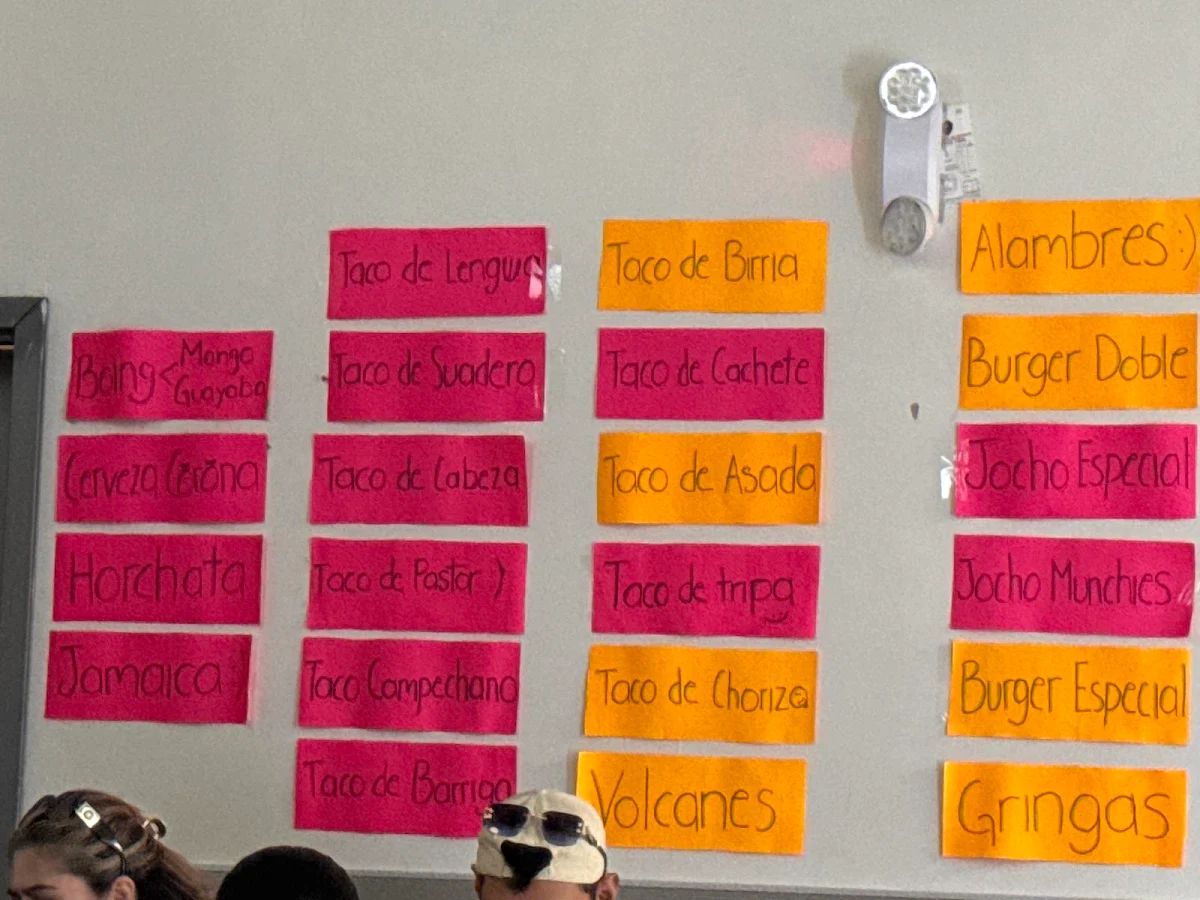 Boing < Mango
Guayaba
Cerveza Corona
Horchata
Jamaica
Taco de Lengua
Taco de Suadero
Taco de Cabeza
Taco de Pastor )
Taco Campechano
Taco de Barriga
Taco de Birria
Taco de Cachete
Taco de Asada
Taco de tripa
Taco de Chorizo
Volcanes
Alambres :)
Burger Doble
Jocho Especial
Jocho Munchies
Burger Especial
Gringas